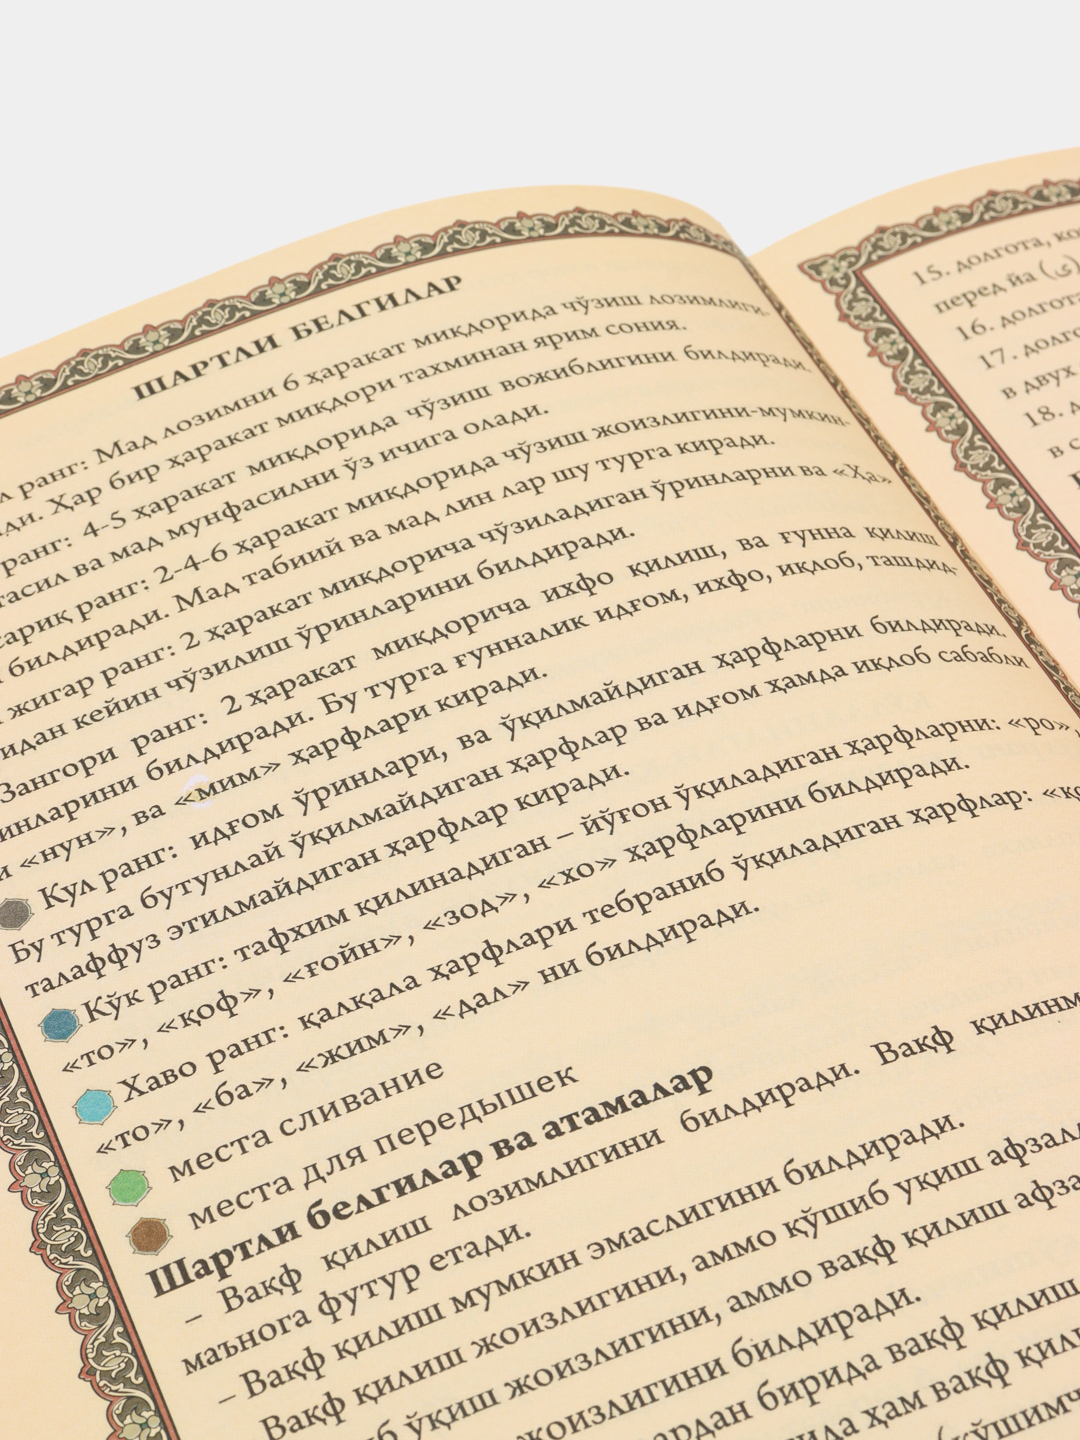 ШАРТЛИ БЕЛГИЛАР
ранг: Мад лозимни 6 ҳаракат миқдорида чўзиш лозимлиги-
Ҳар бир ҳаракат миқдори тахминан ярим сония.
ранг: 4-5 ҳаракат миқдорида чўзиш вожиблигини билдиради.
ва мад мунфасилни ўз ичига олади.
ранг: 2-4-6 ҳаракат миқдорида чўзиш жоизлигини-мумкин-
билдиради. Мад табиий ва мад лин лар шу турга киради.
жигар ранг: 2 ҳаракат миқдорича чўзиладиган ўринларни ва «Ҳа»
кейин чўзилиш ўринларини билдиради.
Зангори ранг: 2 ҳаракат миқдорича ихфо қилиш, ва ғунна қилиш
билдиради. Бу турга ғунналик идғом, ихфо, иқлоб, ташдид-
«нун», ва «мим» ҳарфлари киради.
Кул ранг: идғом ўринлари, ва ўқилмайдиган ҳарфларни билдиради.
Бу турга бутунлай ўқилмайдиган ҳарфлар ва идғом ҳамда иқлоб сабабли
талаффуз этилмайдиган ҳарфлар киради.
Кўк ранг: тафхим қилинадиган – йўғон ўқиладиган ҳарфларни: «ро»,
«то», «қоф», «ғойн», «зод», «хо» ҳарфларини билдиради.
Хаво ранг: қалқала ҳарфлари тебраниб ўқиладиган ҳарфлар:
«то», «ба», «жим», «дал» ни билдиради.
места сливание
места для передышек
Шартли белгилар ва атамалар
– Вақф қилиш лозимлигини билдиради. Вақф
маънога футур етади.
– Вақф қилиш мумкин эмаслигини билдиради.
Вақф қилиш жоизлигини, аммо қўшиб уқиш
ўқиш жоизлигини, аммо вақф қилиш
жоизлигини билдиради.
бирида вақф қилиш
ҳам вақф
15. долгота,
перед йа (ي)
16. долгота
17.
в двух
18.
в